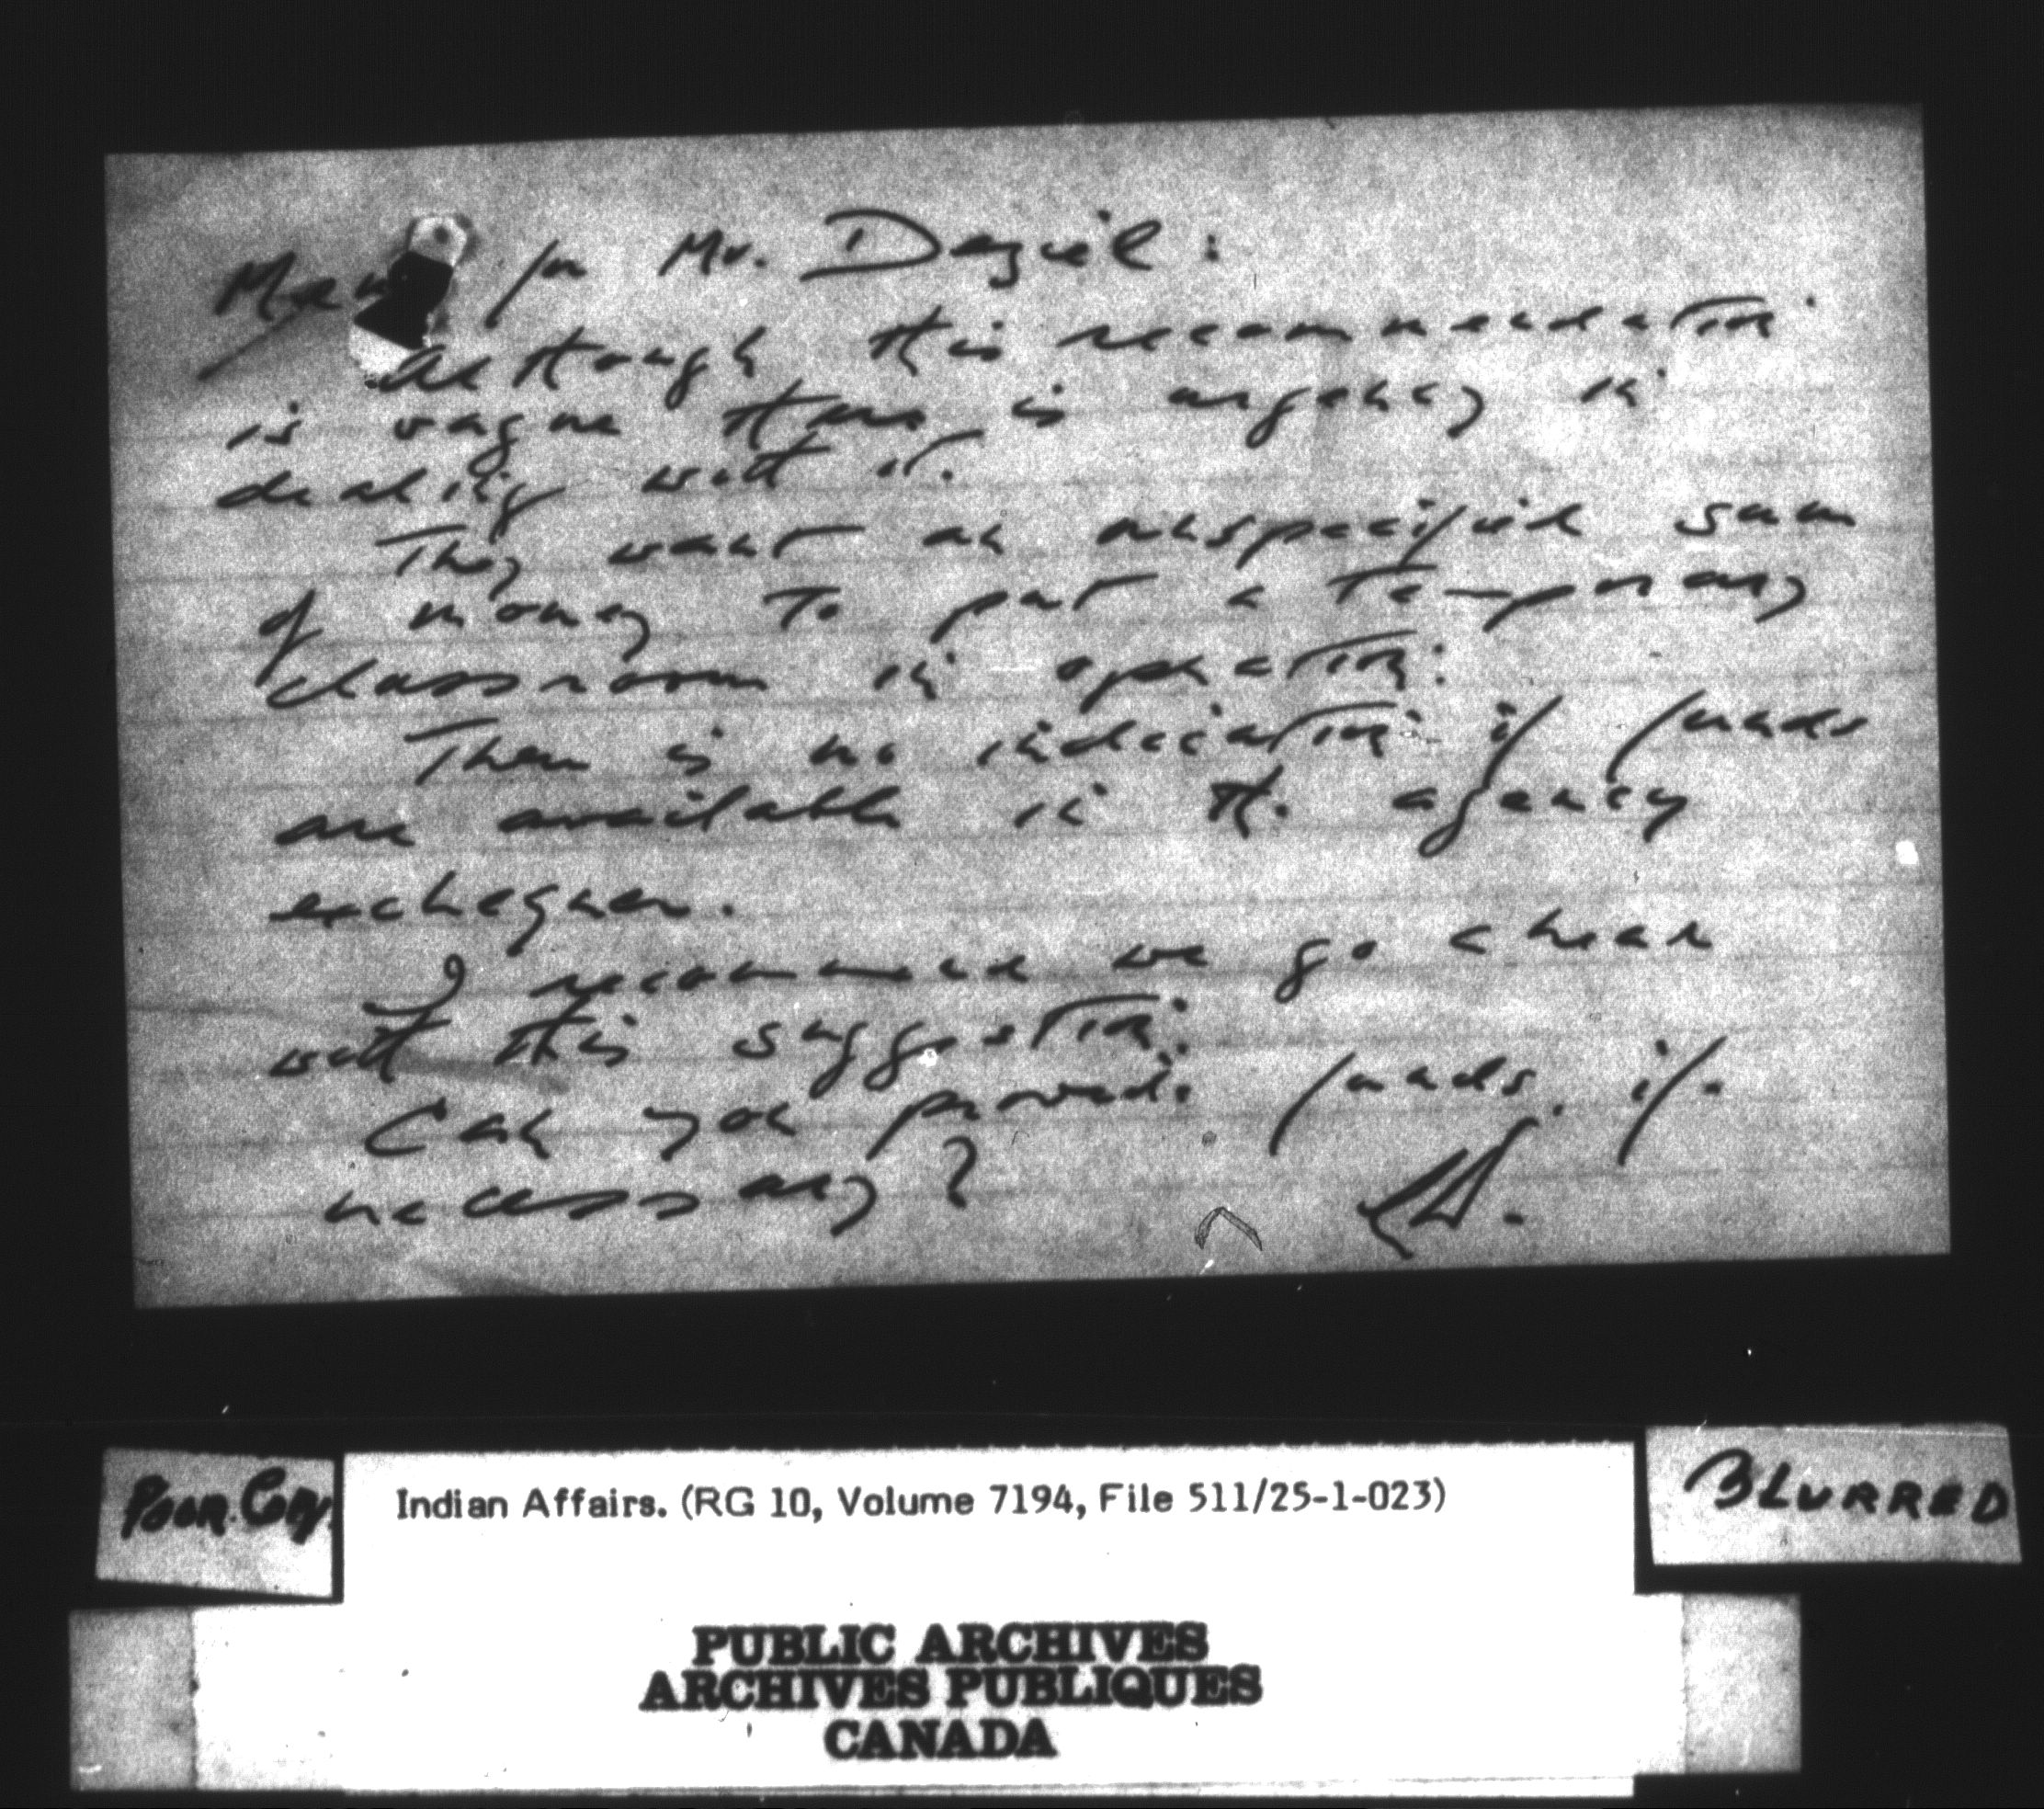 Memo for Mr. Dagiel:
Although this recommendation
is vague there is urgency in
dealing with it.
They want an unspecified sum
of money to put a temporary
classroom in operation.
There is no indication if funds
are available in the agency
exchequer.
I recommend we go ahead
with this suggestion.
Can you provide funds, if
necessary?
POOR COPY.
Indian Affairs. (RG 10, Volume 7194, File 511/25-1-023)
BLURRED
PUBLIC ARCHIVES
ARCHIVES PUBLIQUES
CANADA